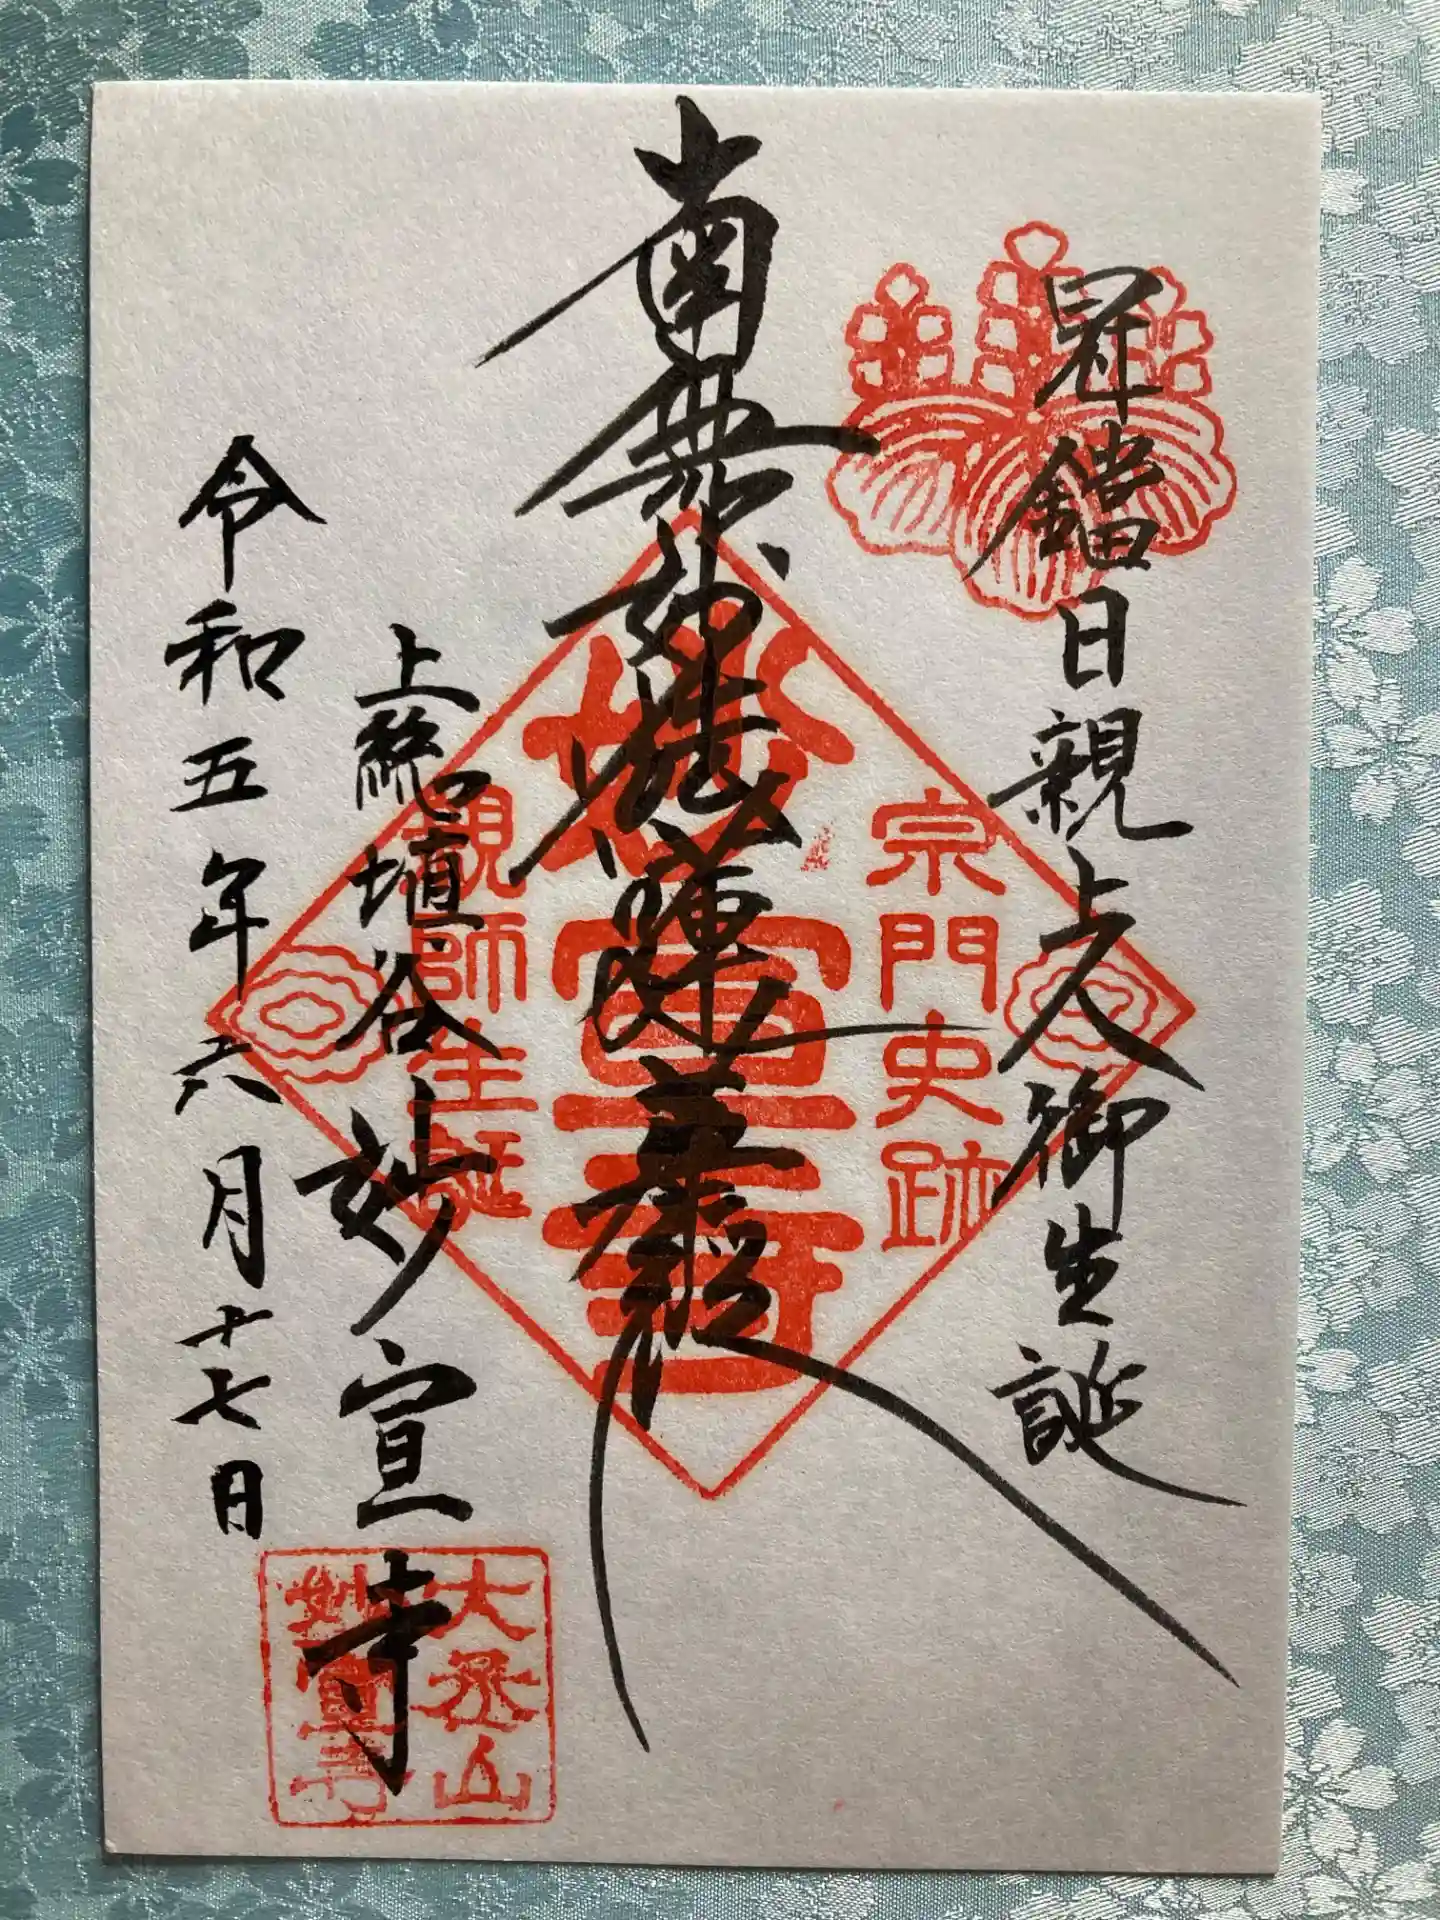 冠鐺日親上人御生誕
宗門史跡
南無妙法蓮華経
妙宣寺
親師生誕
上総埴谷 妙宣寺
大丞山
妙宣寺
令和五年六月十七日